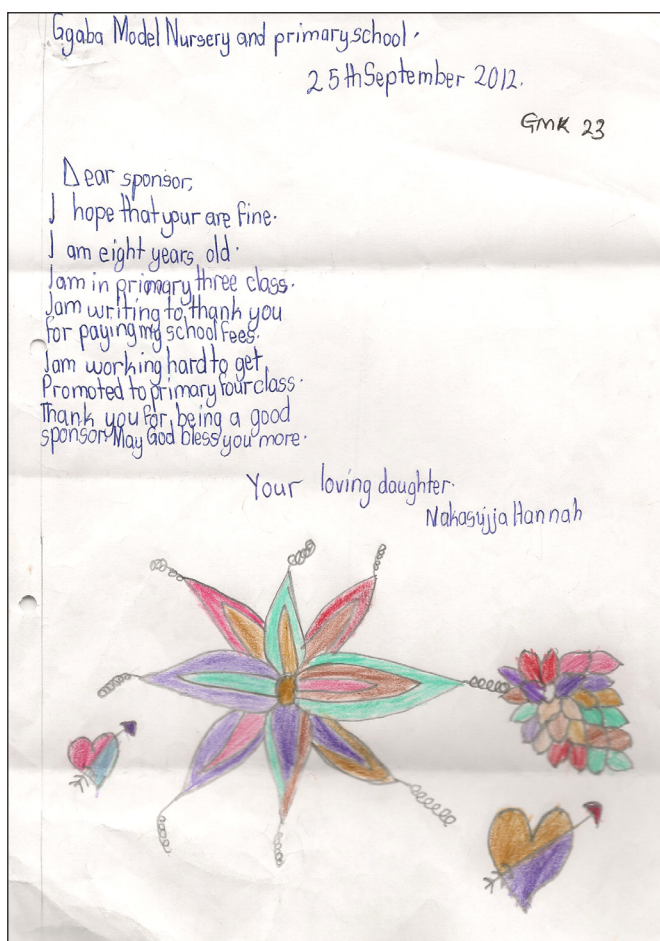 Ggaba Model Nursery and primary school.
25th September 2012.
GMK 23
Dear sponsor,
I hope that your are fine.
I am eight years old.
I am in primary three class.
I am writing to thank you
for paying my school fees.
I am working hard to get
Promoted to primary four class.
Thank you for being a good
sponsor May God bless you more.
Your loving daughter.
Nakasujja Hannah